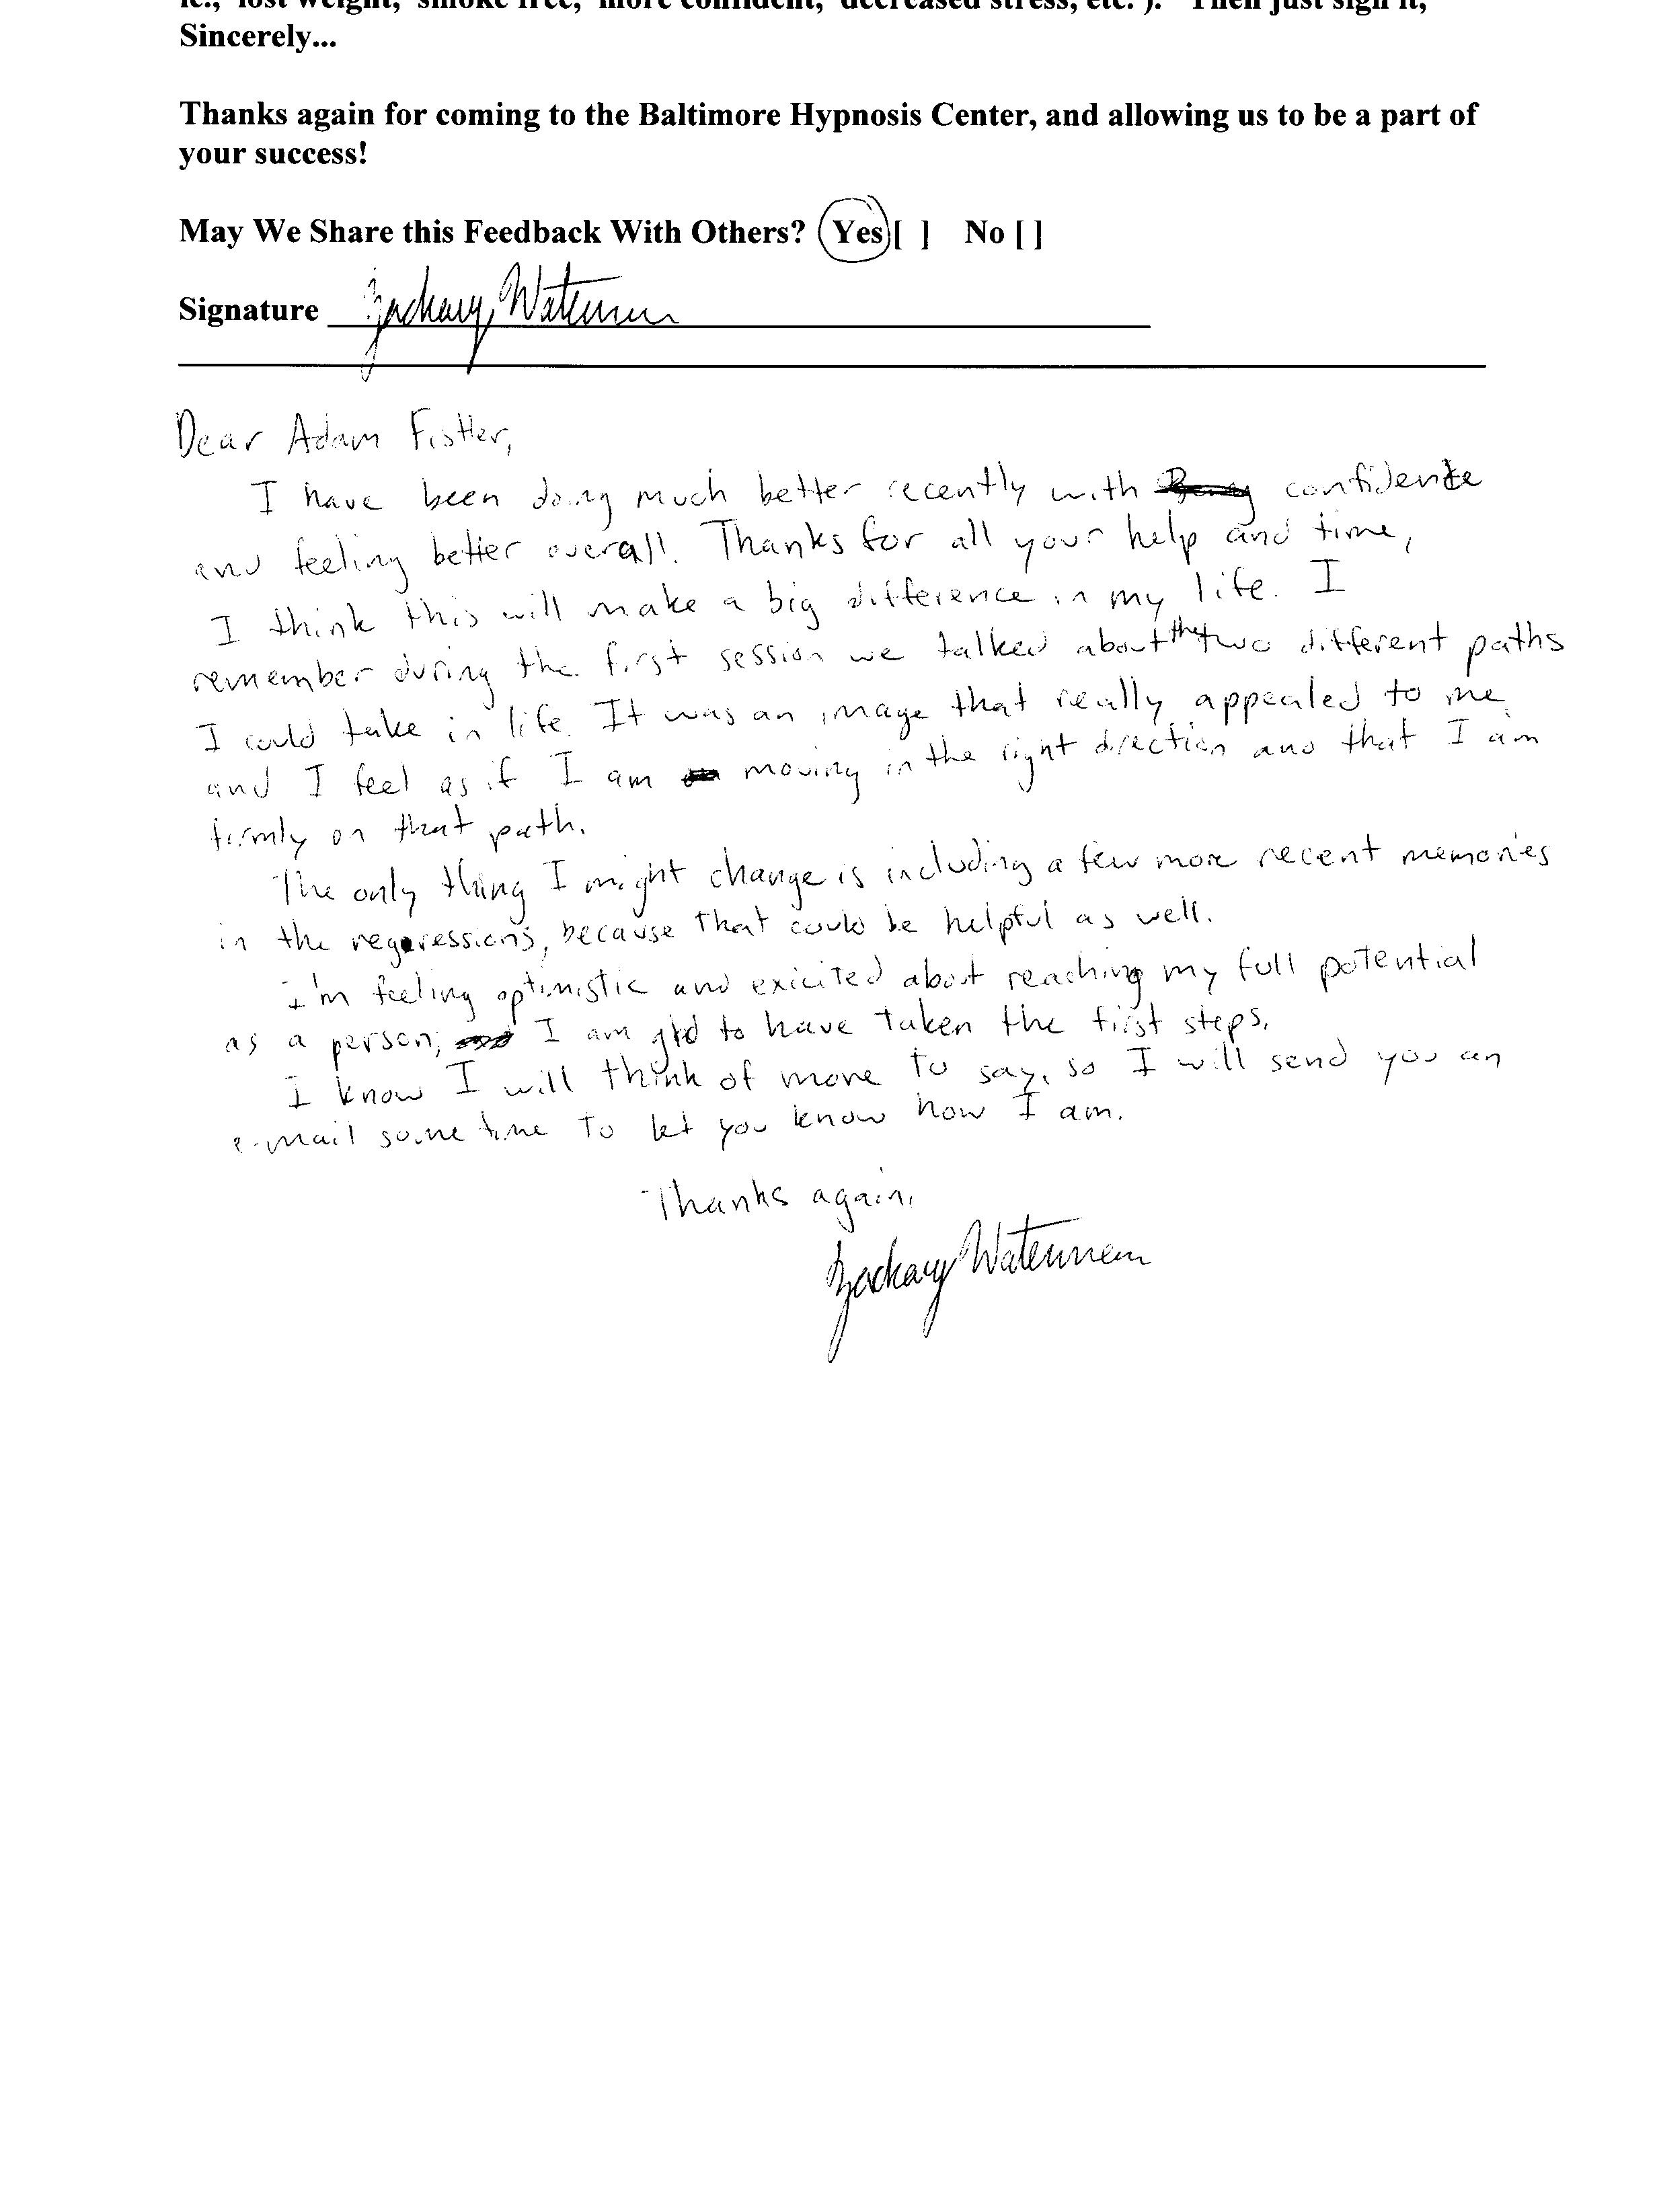 ie., "lost weight," "smoke free," "more confident," "decreased stress, etc."). Then just sign it,
Sincerely...
Thanks again for coming to the Baltimore Hypnosis Center, and allowing us to be a part of
your success!
May We Share this Feedback With Others? Yes [ ] No [ ]
Signature Zackary Waterman
Dear Adam Fistler,
I have been doing much better recently with confidence
and feeling better overall. Thanks for all your help and time,
I think this will make a big difference in my life. I
remember during the first session we talked about the two different paths
I could take in life. It was an image that really appealed to me
and I feel as if I am moving in the right direction and that I am
firmly on that path.
The only thing I might change is including a few more recent memories
in the regressions, because that could be helpful as well.
I'm feeling optimistic and exicited about reaching my full potential
as a person, I am glad to have taken the first steps.
I know I will think of more to say, so I will send you an
e-mail sometime to let you know how I am.
Thanks again,
Zackary Waterman